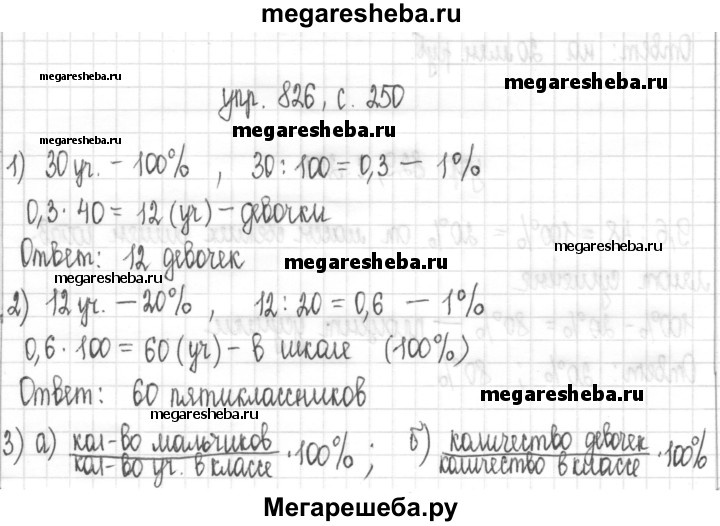 megaresheba.ru
megaresheba.ru
megaresheba.ru
упр. 826, с. 250
megaresheba.ru
megaresheba.ru
1) 30 уч. - 100% , 30 : 100 = 0,3 - 1%
0,3 · 40 = 12 (уч) - девочки
megaresheba.ru
Ответ: 12 девочек
megaresheba.ru
megaresheba.ru
2) 12 уч. - 20% , 12 : 20 = 0,6 - 1%
0,6 · 100 = 60 (уч) - в школе (100%)
Ответ: 60 пятиклассников
megaresheba.ru
megaresheba.ru
3) а) кол-во мальчиков / кол-во уч. в классе · 100% ; б) количество девочек / количество в классе · 100%
megaresheba.ru
Мегарешеба.ру